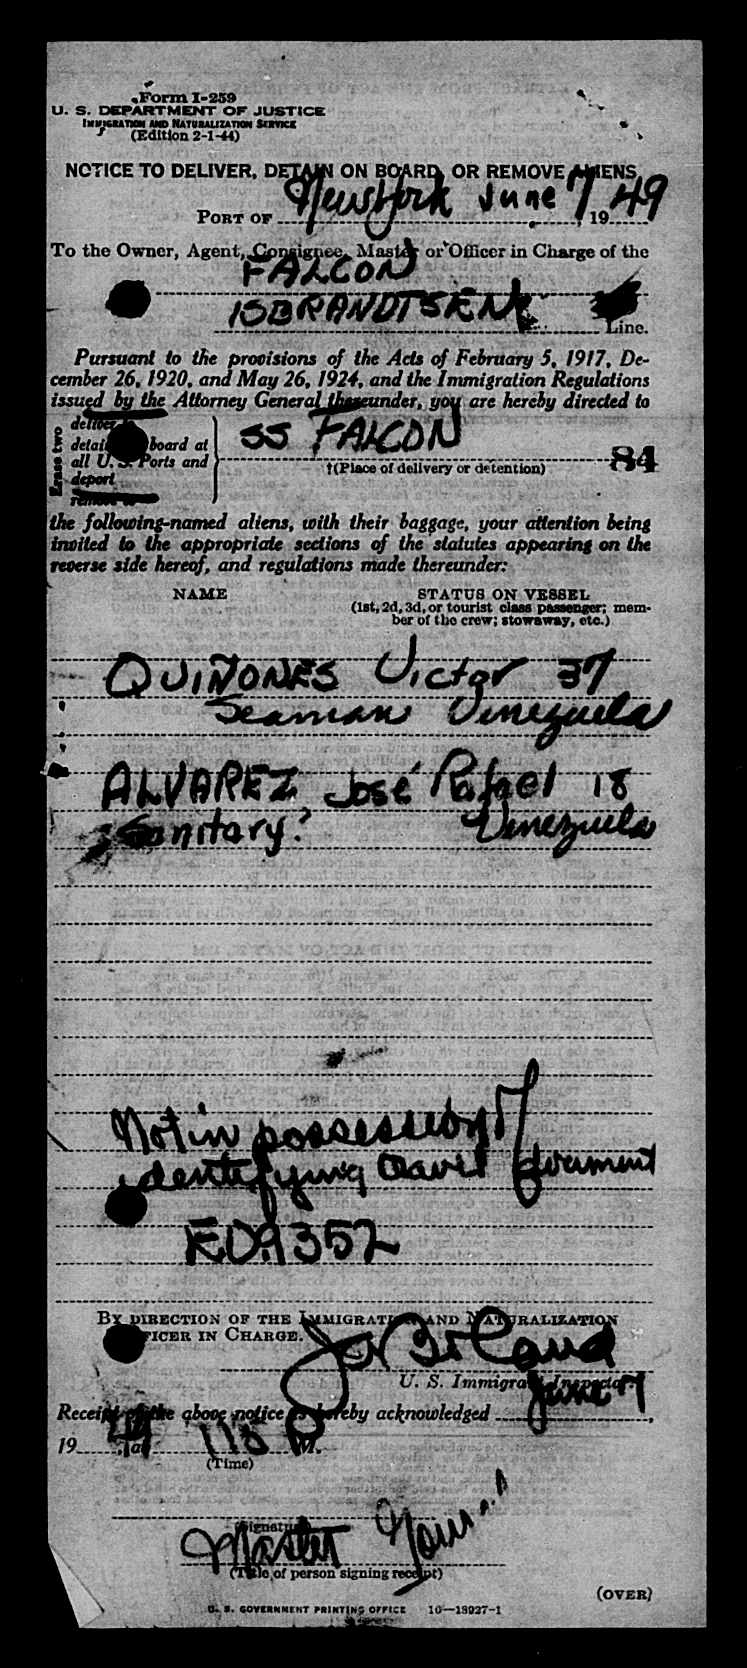 Form I-259
U. S. DEPARTMENT OF JUSTICE
IMMIGRATION AND NATURALIZATION SERVICE
(Edition 2-1-44)
NOTICE TO DELIVER, DETAIN ON BOARD, OR REMOVE ALIENS
PORT OF New York June 7, 19 49
To the Owner, Agent, Consignee, Master or Officer in Charge of the
FALCON
ISBRANDTSEN Line.
Pursuant to the provisions of the Acts of February 5, 1917, De-
cember 26, 1920, and May 26, 1924, and the Immigration Regulations
issued by the Attorney General thereunder, you are hereby directed to
Erase two
deliver
detain board at
all U. S. Ports and
deport
remove to
SS FALCON
†(Place of delivery or detention)
84
the following-named aliens, with their baggage, your attention being
invited to the appropriate sections of the statutes appearing on the
reverse side hereof, and regulations made thereunder:
NAME STATUS ON VESSEL
(1st, 2d, 3d, or tourist class passenger; mem-
ber of the crew; stowaway, etc.)
QUIÑONES Victor 37
Seaman Venezuela
ALVAREZ José Rafael 18
Sanitary? Venezuela
Not in possession of
identifying travel document
BY DIRECTION OF THE IMMIGRATION AND NATURALIZATION
OFFICER IN CHARGE.
U. S. Immigrant Inspector.
Receipt of the above notice is hereby acknowledged June 7,
19 49, at 115 P M.
(Time)
(Signature)
Master
(Title of person signing receipt)
(OVER)
U. S. GOVERNMENT PRINTING OFFICE 16—18927-1